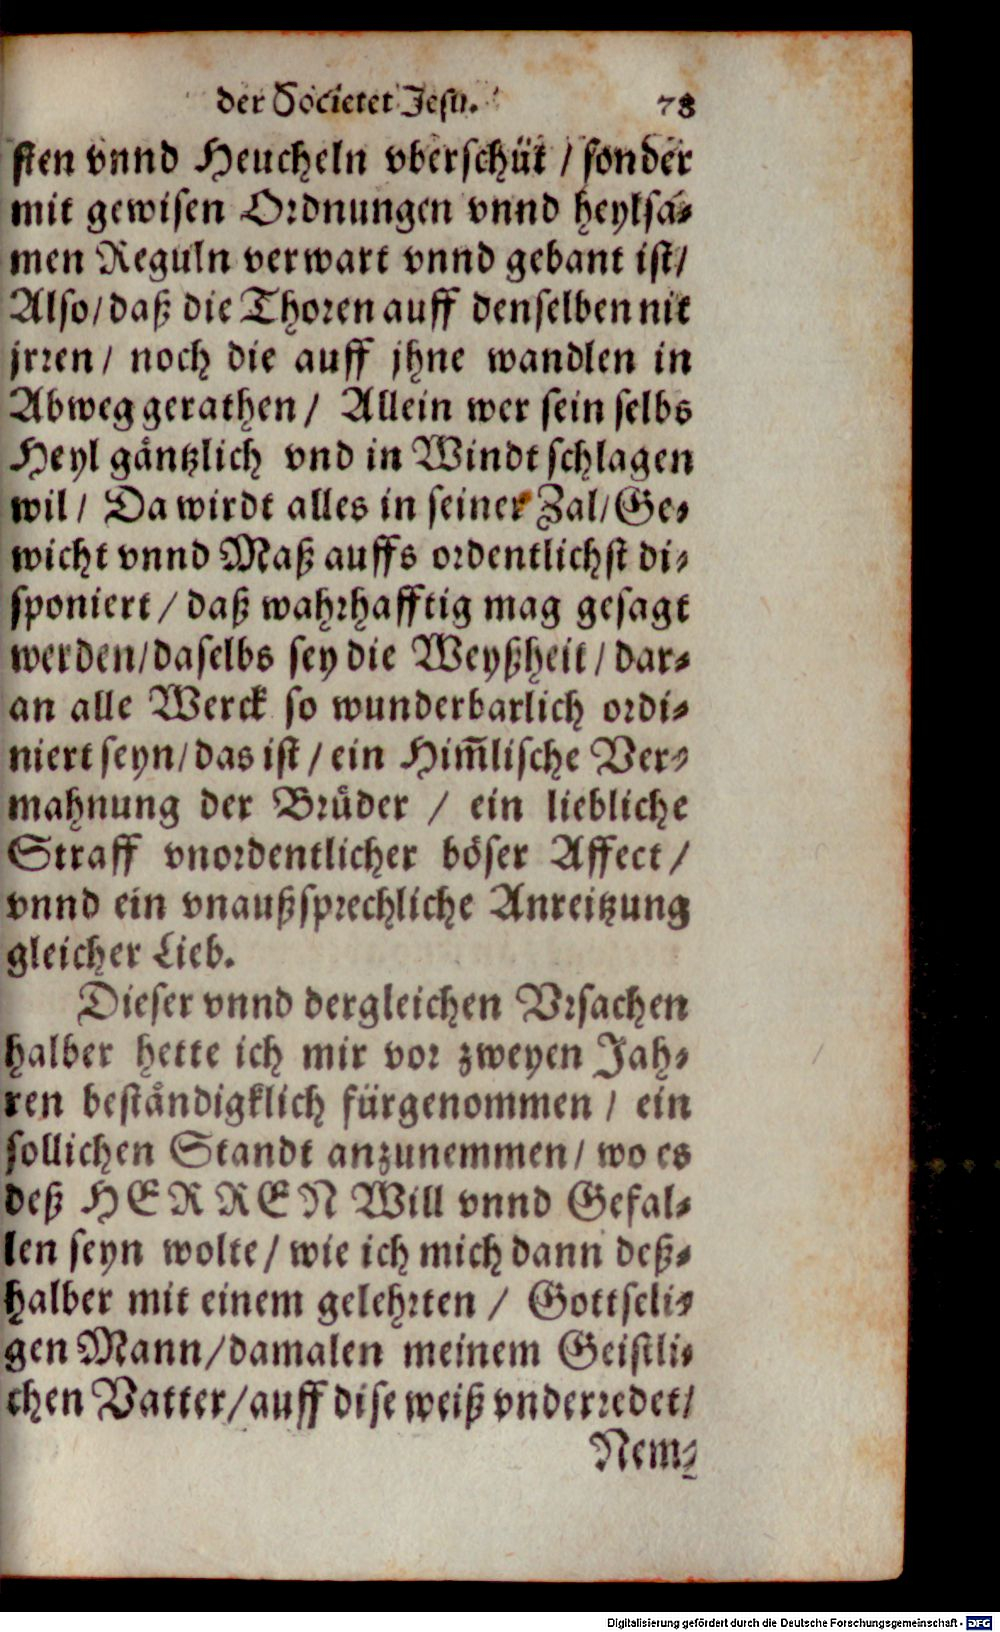 der Societet Jesu. 78
sten vnnd Heucheln vberschüt / sonder
mit gewisen Ordnungen vnnd heylsa⸗
men Reguln verwart vnnd gebant ist/
Also/ daß die Thoren auff denselben nit
jrren / noch die auff jhne wandlen in
Abweg gerathen / Allein wer sein selbs
Heyl gäntzlich vnd in Windt schlagen
wil / Da wirdt alles in seiner Zal/ Ge⸗
wicht vnnd Maß auffs ordentlichst di⸗
sponiert / daß wahrhafftig mag gesagt
werden/ daselbs sey die Weyßheit / dar⸗
an alle Werck so wunderbarlich ordi⸗
niert seyn/ das ist / ein Him̃lische Ver⸗
mahnung der Brůder / ein liebliche
Straff vnordentlicher böser Affect /
vnnd ein vnaußsprechliche Anreitzung
gleicher Lieb.
Dieser vnnd dergleichen Vrsachen
halber hette ich mir vor zweyen Jah⸗
ren beständigklich fürgenommen / ein
sollichen Standt anzunemmen / wo es
deß HERREN Will vnnd Gefal⸗
len seyn wolte / wie ich mich dann deß⸗
halber mit einem gelehrten / Gottseli⸗
gen Mann / damalen meinem Geistli⸗
chen Vatter / auff dise weiß vnderredet /
Nem⸗
Digitalisierung gefördert durch die Deutsche Forschungsgemeinschaft - DFG